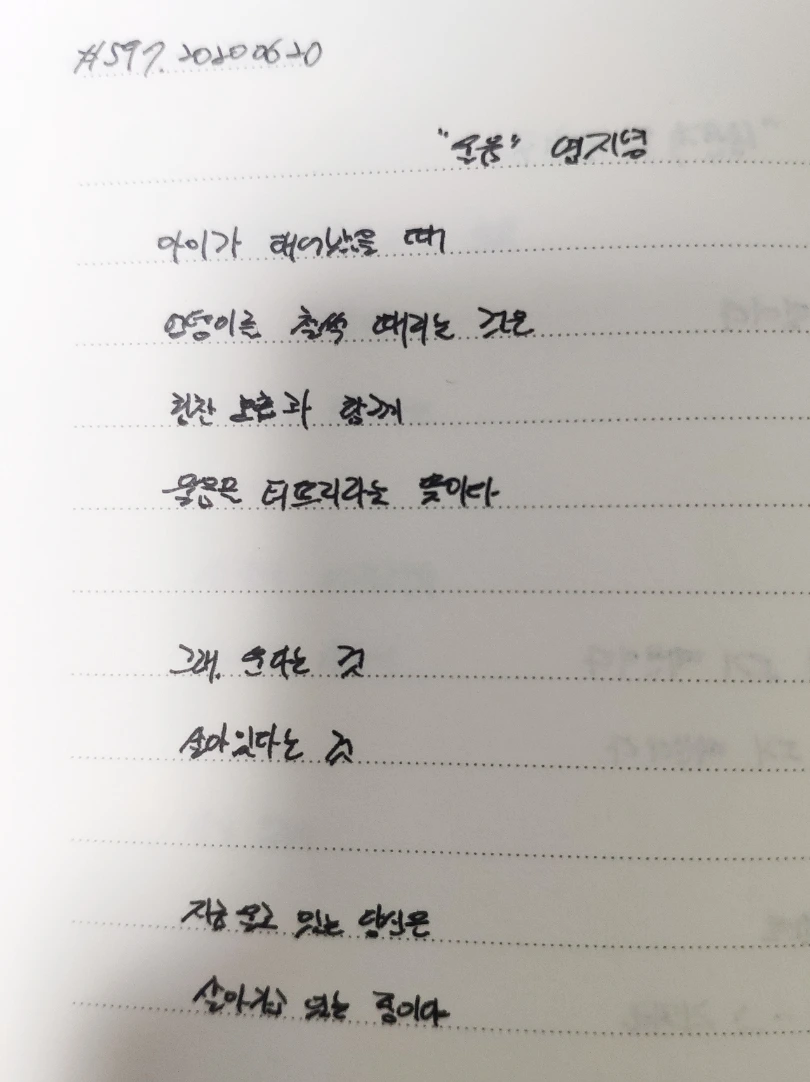 #597. 20200620
"울음" 염지녕
아이가 태어났을 때
엉덩이를 철썩 때리는 것은
힘찬 호흡과 함께
울음을 터뜨리라는 뜻이다
그래, 운다는 것
살아있다는 것
지금 울고 있는 당신은
살아가고 있는 중이다